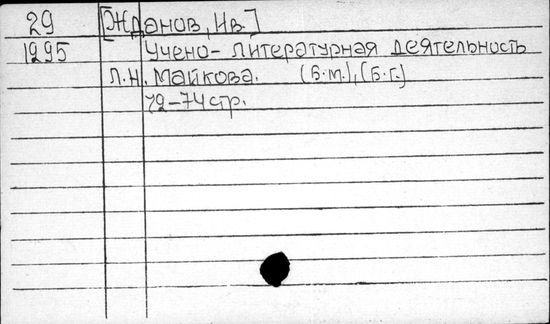 29 [Жданов, Ив.]
1295 Учено-литературная деятельность
Л.Н. Майкова. (б.м.), (б.г.)
72-74 стр.